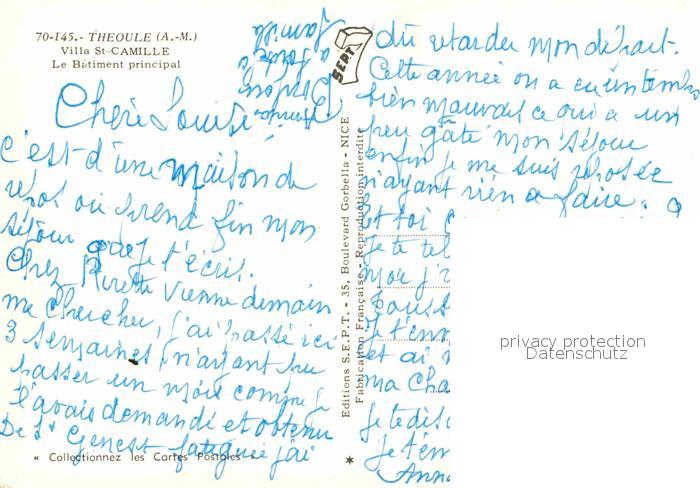 70-145.- THEOULE (A.-M.)
Villa St-CAMILLE
Le Bâtiment principal
Chère Louise
c'est d'une maison de
repos où prend fin mon
séjour que je t'écris.
Chez Vienne demain
me chercher, j'ai passé ici
3 semaines, n'ayant pu
passer un mois comme je
l'avais demandé et obtenu
De St Genest fatiguée j'ai
« Collectionnez les Cartes Postales »
Bonjour
à toute la
famille
Editions S.E.P.T. - 35, Boulevard Gorbella - NICE
Fabrication Française - Reproduction interdite
SEPT 7
dû retarder mon départ.
Cette année on a eu un temps
bien mauvais ce qui a un
peu gâté mon séjour
enfin je me suis reposée
n'ayant rien à faire.
Et toi
je te tel
moi j'
Je t'en
et ai
ma Cha
je te dis
je t'em
Ann
privacy protection
Datenschutz